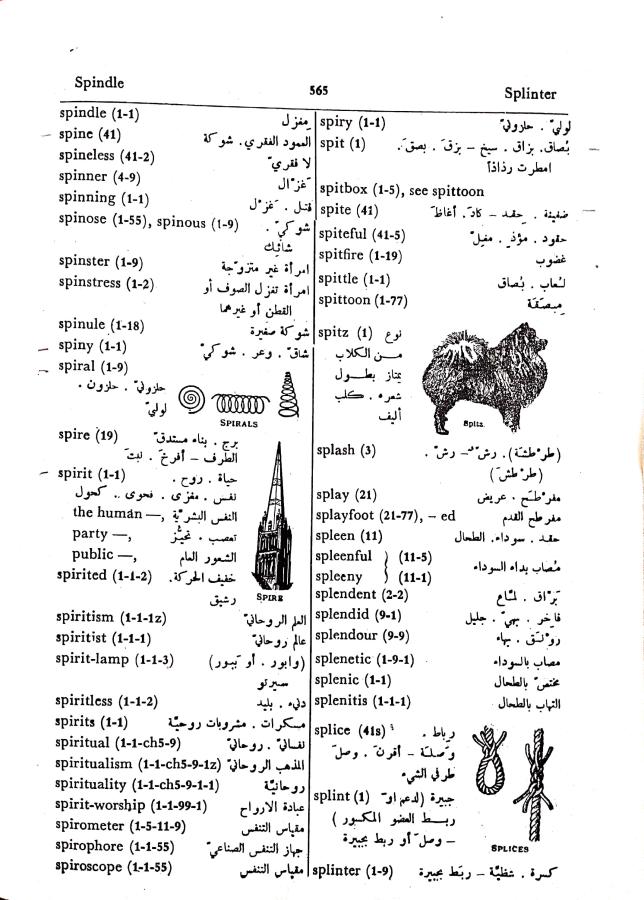 Spindle
565
Splinter
spindle (1-1) مِغزل
spine (41) العمود الفقري. شوكة
spineless (41-2) لا فقريّ
spinner (4-9) غَزّال
spinning (1-1) فتل. غَزْل
spinose (1-55), spinous (1-9) شوكيّ.
شائِك
spinster (1-9) امرأة غير متزوّجة
spinstress (1-2) امرأة تغزل الصوف أو
القطن أو غيرهما
spinule (1-18) شوكة صغيرة
spiny (1-1) شاقّ. وعر. شوكيّ
spiral (1-9) حلزونيّ. حلزون.
لولبيّ
SPIRALS
spire (19) برج. بناء مستدقّ
الطرف – أفرخَ.
spirit (1-1) حياة. روح.
نفس. مغزى. فحوى.. كحول
the human —, النفس البشريّة
party —, تعصب. تحيُّز
public —, الشعور العام
spirited (1-1-2) خفيف الحركة.
رشيق
SPIRE
spiritism (1-1-1z) العلم الروحانيّ
spiritist (1-1-1) عالم روحانيّ
spirit-lamp (1-1-3) (وابور. أو) 
سبرتو
spiritless (1-1-2) دنيء. بليد
spirits (1-1) مسكرات. مشروبات روحيّة
spiritual (1-1-ch5-9) نفسانيّ. روحانيّ
spiritualism (1-1-ch5-9-1z) المذهب الروحانيّ
spirituality (1-1-ch5-9-1-1) روحانيّة
spirit-worship (1-1-99-1) عبادة الارواح
spirometer (1-5-11-9) مقياس التنفس
spirophore (1-1-55) جهاز التنفس الصناعيّ
spiroscope (1-1-55) مقياس التنفس
spiry (1-1) لولبيّ. حلزونيّ
spit (1) بُصاق. بزاق. سيخ – بزقَ. بصقَ.
امطرت رذاذاً
spitbox (1-5), see spittoon
spite (41) ضغينة. حقد – كادَ. أغاظَ
spiteful (41-5) حقود. مؤذٍ.
spitfire (1-19) غضوب
spittle (1-1) لُعاب. بُصاق
spittoon (1-77) مِبصقة
spitz (1) نوع
من الكلاب
يمتاز بطول
شعره. كلب
أليف
Spitz.
splash (3) (طرْطشة). رشّ – رشّ.
(طرْطشَ)
splay (21) مفرْطَح. عريض
splayfoot (21-77), – ed مفرطح القدم
spleen (11) حقد. سوداء. الطحال
spleenful (11-5)
spleeny (11-1) مُصاب بداء السوداء
splendent (2-2) برّاق. لمّاع
splendid (9-1) فاخر. بهيّ. جليل
splendour (9-9) رونق. بهاء
splenetic (1-9-1) مصاب بالسوداء
splenic (1-1) مختصّ بالطحال
splenitis (1-1-1) التهاب بالطحال
splice (41s) رباط.
وصلة – أقرنَ. وصلَ
طرفي الشيء
splint (1) جبيرة (لدعم او
ربط العضو المكسور)
– وصلَ أو ربط بجبيرة
SPLICES
splinter (1-9) كسرة. شظيّة – ربَط بجبيرة